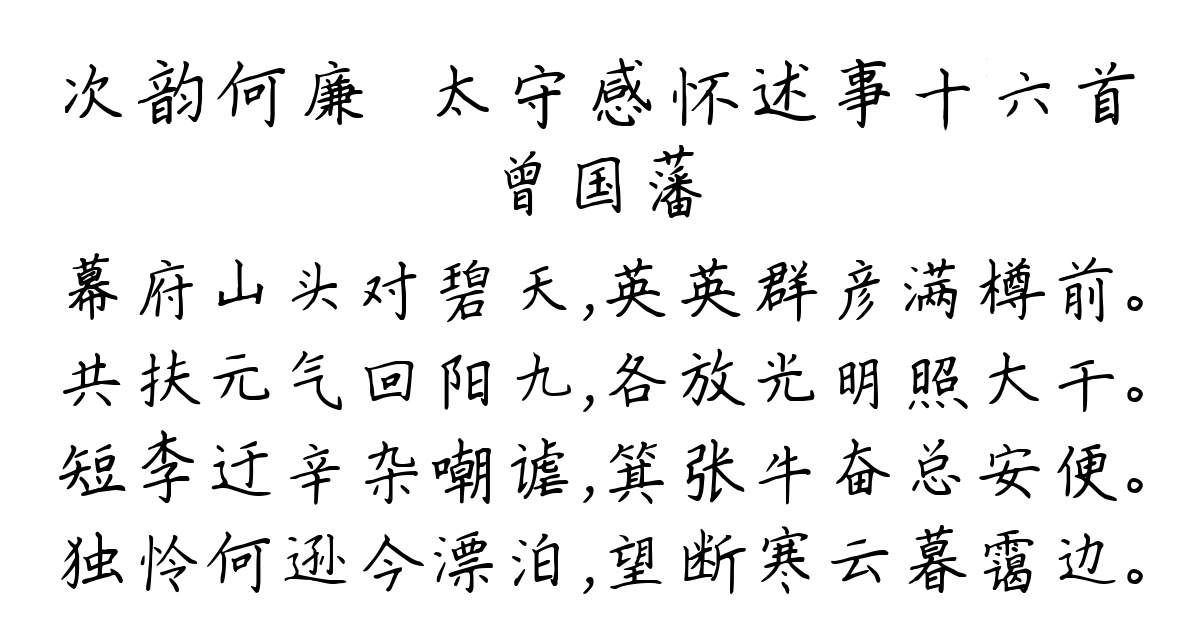 次韵何廉 太守感怀述事十六首
曾国藩
幕府山头对碧天,英英群彦满樽前。
共扶元气回阳九,各放光明照大干。
短李迂辛杂嘲谑,箕张牛奋总安便。
独怜何逊今漂泊,望断寒云暮霭边。